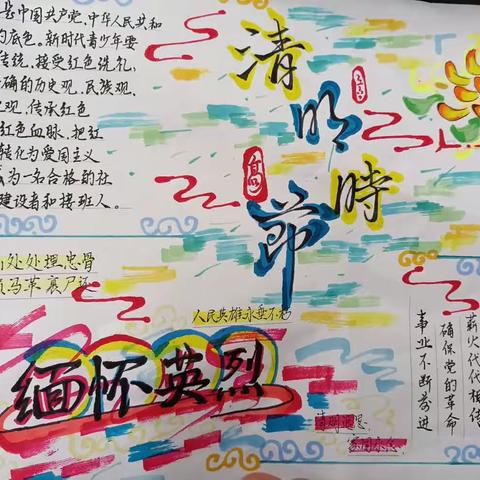 是中国共产党、中华人民共和
的底色。新时代青少年要
传统,接受红色洗礼,
确的历史观、民族观、
观,传承红色
红色血脉,把红
转化为爱国主义
为一名合格的社
建设者和接班人。
清明時節
山处处埋忠骨
马革裹尸
人民英雄永垂不朽
缅怀英烈
薪火代代相传
确保党的革命
事业不断前进
清明追思
家国永念